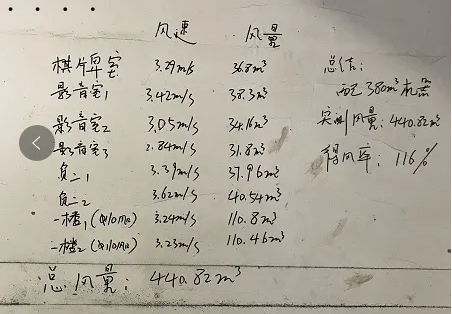 风速 风量
棋牌室 3.29m/s 36.8m³ 总结:
影音室1 3.42m/s 38.3m³ 配380m³机器
影音室2 3.05m/s 34.16m³ 实测风量:440.82m³
影音室3 2.84m/s 31.8m³ 得风率:116%
负二1 3.39m/s 37.96m³
负二2 3.62m/s 40.54m³
一楼1(Φ110mm) 3.24m/s 110.8m³
一楼2(Φ110mm) 3.23m/s 110.46m³
总风量:440.82m³